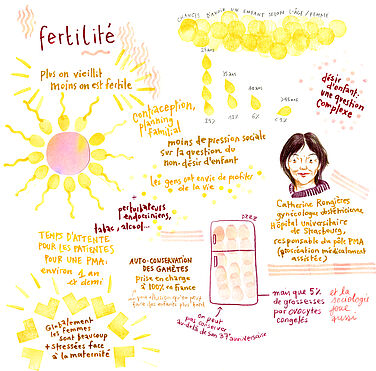 fertilité
CHANCES D'AVOIR UN ENFANT SELON L'ÂGE/FEMME
25 ans
35 ans
40 ans
25%
12%
6%
Plus on vieillit
moins on est fertile
contraception,
planning
familial
désir
d'enfant:
une question
complexe
moins de pression sociale
sur la question du
non-désir d'enfant
les gens ont envie de profiter
de la vie
perturbateurs
endocriniens,
tabac, alcool...
Catherine Rongières
gynécologue obstétricienne
Hôpital universitaire
de Strasbourg,
responsable du pôle PMA
(procréation médicalement
assistée)
TEMPS D'ATTENTE
POUR LES PATIENTES
POUR UNE PMA:
environ 1 an
et demi
AUTO-CONSERVATION
DES GAMÈTES
prise en charge
à 100% en France
on peut
pas conserver
au-delà de son 37e anniversaire
moins que 5%
de grossesses
par ovocytes
congelés
et la
sociologie
joue
aussi
Globalement
les femmes
sont beaucoup
+ stressées face
à la maternité